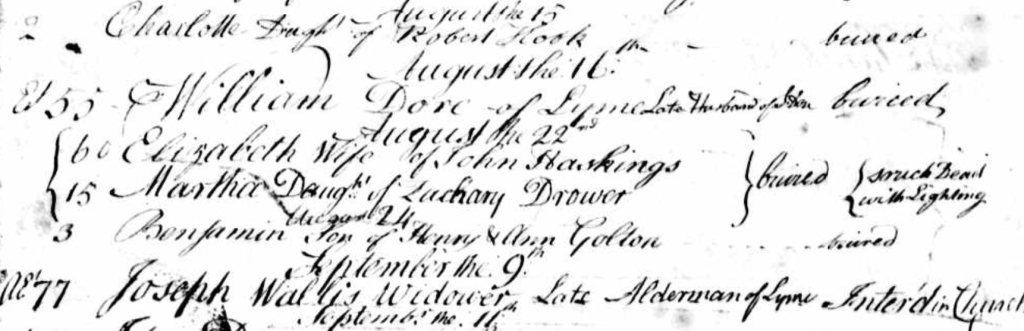 August the 15
2 Charlotte Daugh.r of Robert Hook buried
August the 16th
Æt 55 William Dore of Lyme Late Husband of buried
August the 22nd
60 Elizabeth Wife of John Haskings
15 Martha Daugh.r of Zachary Drower buried struck Dead with Lighting
August 24
3 Benjamin Son of Henry & Ann Golton buried
September the 9th
Æt 77 Joseph Wallis Widower Late Alderman of Lyme Inter'd in Church
Septemb.r the 16th